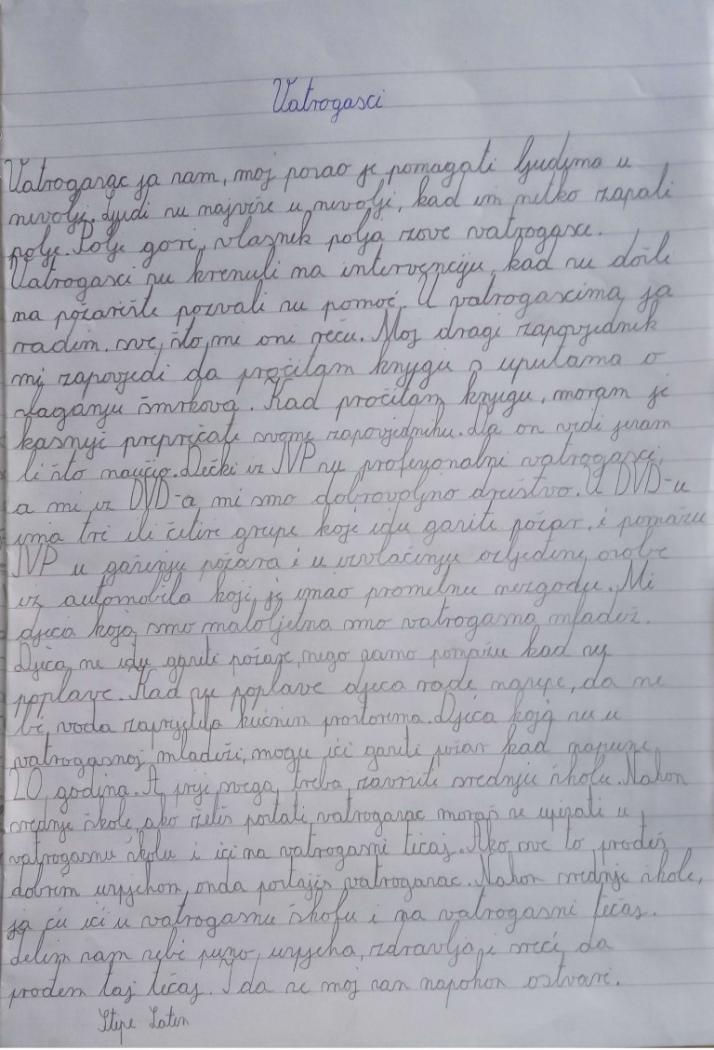 Vatrogasci
Vatrogasac ja sam, moj posao je pomagati ljudima u
nevolji. Ljudi su najviše u nevolji, kad im netko zapali
polje. Polje gori, vlasnik polja zove vatrogasce.
Vatrogasci su krenuli na intervenciju, kad su došli
na požarište pozvali su pomoć. U vatrogascima ja
radim sve, što mi oni reču. Moj dragi zapovjednik
mi zapovjedi da pročitam knjigu o uputama o
slaganju šmrkova. Kad pročitam knjigu, moram je
kasnije prepričati svome zapovjedniku. Da on vidi jesam
li što naučio. Dečki iz JVP su profesionalni vatrogasci,
a mi iz DVD-a mi smo dobrovoljno društvo. U DVD-u
ima tri ili četiri grupe koje idu gasiti požar i pomažu
JVP u gašenju požara i u izvlačenju ozljeđene osobe
iz automobila koji je imao prometnu nezgodu. Mi
djeca koja smo maloljetna smo vatrogasna mladež.
Djeca ne idu gasiti požare, nego samo pomažu kad su
poplave. Kad su poplave djeca rade nasipe, da ne
bi, voda zaprijetila kućnim prostorima. Djeca koja su u
vatrogasnoj mladeži, mogu ići gasiti požar kad napune
20 godina. A prije svega, treba završiti srednju školu. Nakon
srednje škole, ako želiš postati vatrogasac moraš se upisati u
vatrogasnu školu i ići na vatrogasni tečaj. Ako sve to prođeš
dobrim uspjehom, onda postaješ vatrogasac. Nakon srednje škole,
ja ću ići u vatrogasnu školu i na vatrogasni tečaj.
Želim sam sebi puno, uspjeha, zdravlja i sreće, da
prođem taj tečaj. I da se moj san napokon ostvari.
Stipe Laten